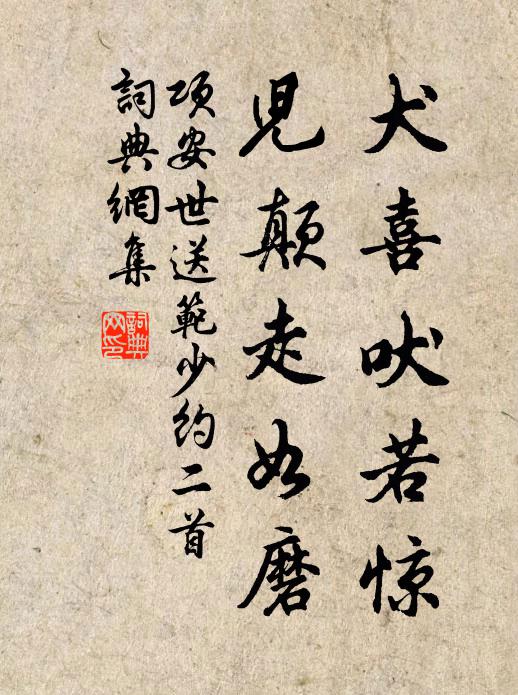 犬喜吠若惊
児颠走如磨
项安世送範少约二首
詞典網集
詞典网印